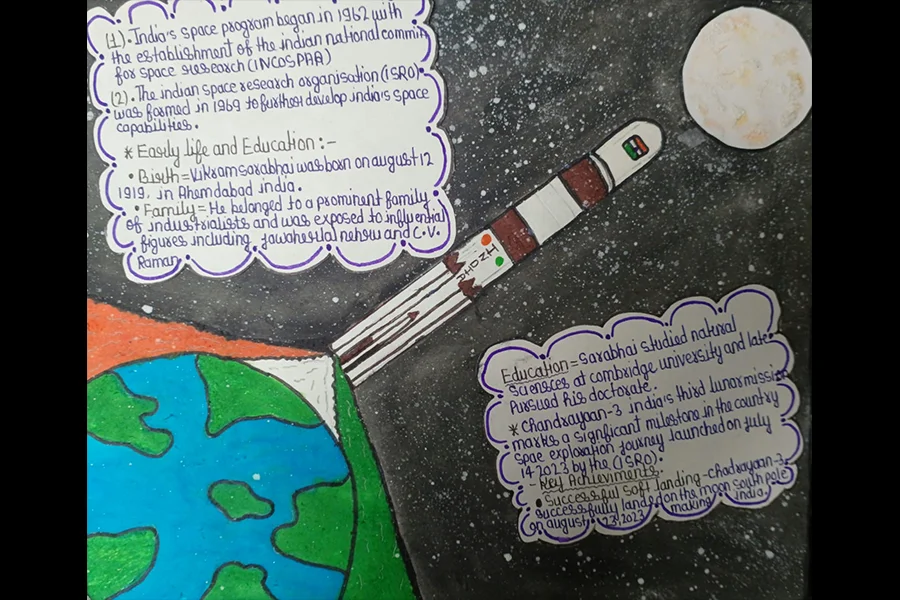 (1). India's space program began in 1962 with
the establishment of the indian national commit
for space research (INCOSPAR)
(2). The indian space research organisation (ISRO)
was formed in 1969 to further develop india's space
capabilities.
* Easily life and Education :-
• Birth = Vikram sarabhai was born on august 12
1919, in Ahemdabad india.
• Family = He belonged to a prominent family
of industrialists and was exposed to influential
figures including jawaherlal nehru and C.V.
Raman
INDIA
Education = Sarabhai studied natural
sciences at combridge university and late
Pursued his doctorate.
* Chandrayaan-3 india's third lunar mission
marks a signficant milestone in the country
spae exploration journey launched on july
14 2023 by the (ISRO).
- Key Achieviments.
• Successful soft landing - Chadrayaan-3
successfully landed on the moon south pole
on august 23, 2023 making india.